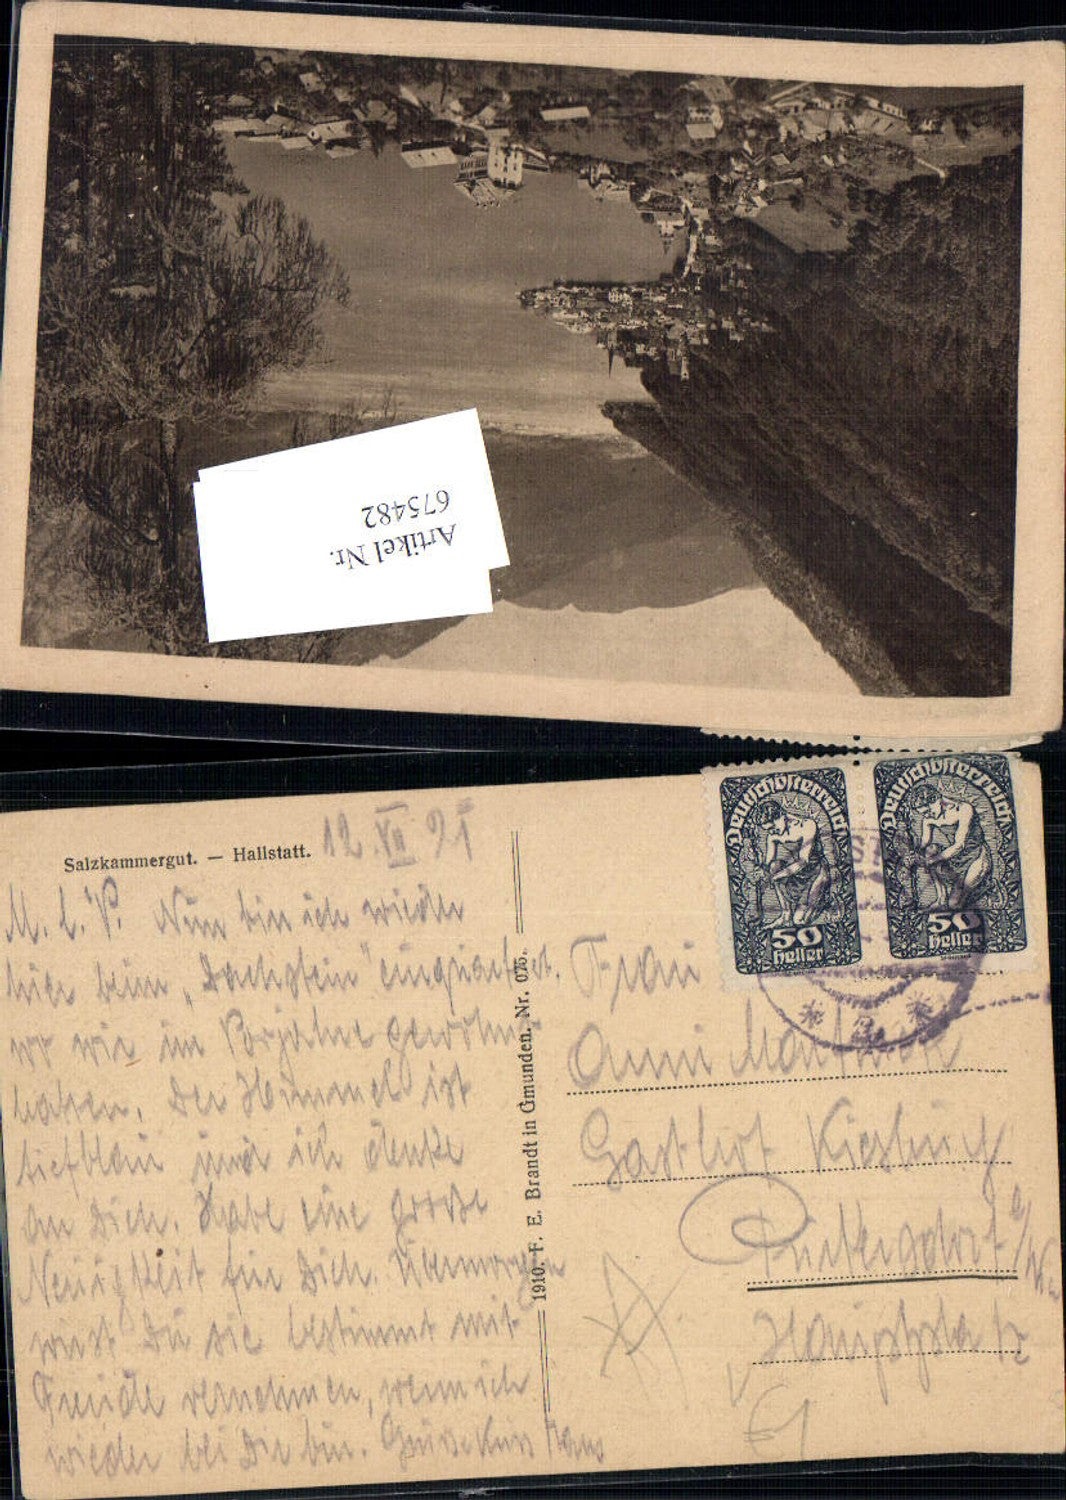 Artikel Nr.
675482
Salzkammergut. — Hallstatt.
12. VII 21
M. L. P. Nun bin ich wieder
hier beim „Dachstein" einquartiert.
wo wir im Vorjahre gewohnt
haben. Der Himmel ist
tiefblau und ich denke
an Dich. Habe eine große
Neuigkeit für Dich. Übermorgen
wirst Du sie bestimmt mit
Freude vernehmen, wenn ich
wieder bei Dir bin. Hans
1910. F. E. Brandt in Gmunden. Nr. 075.
Deutschösterreich
50
Heller
Deutschösterreich
50
Heller
Frau
Anni
Gasthof
Hauptplatz